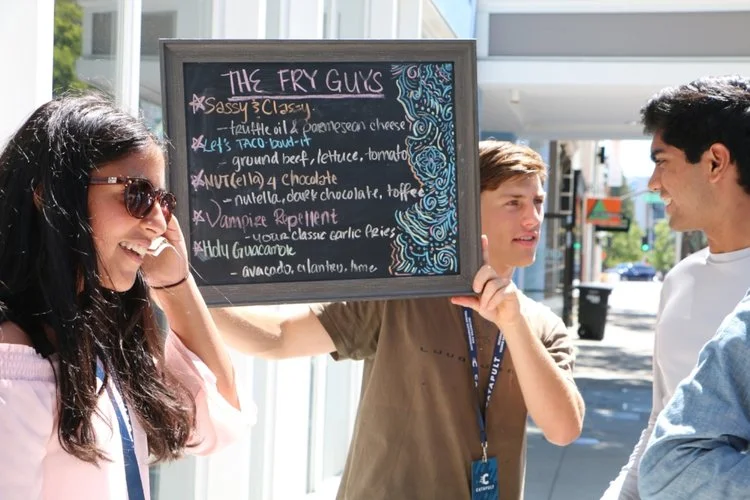 THE FRY GUYS
Sassy & Classy
- truffle oil & parmesean cheese
Let's TACO-bout-it
- ground beef, lettuce, tomato
NUT(ella) 4 Chocolate
- nutella, dark chocolate, toffee
Vampire Repellent
- your classic garlic fries
Holy Guacamole
- avocado, cilantro, lime
CATAPULT
C
CATAPULT